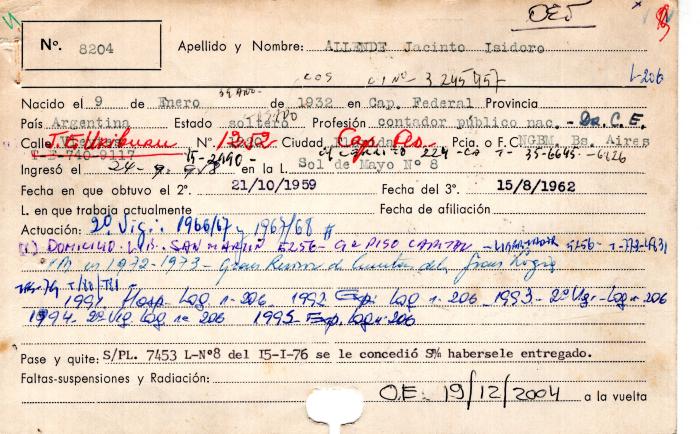 OED
Nº. 8204
Apellido y Nombre: ALLENDE Jacinto Isidoro
3245457
L-206
Nacido el 9 de Enero de 1932 en Cap. Federal Provincia
País Argentina Estado soltero Profesión contador público nac. - Dr. C. E.
Calle J. E. Uriburu Nº 1252 Ciudad Cap. Pcia. o F.C. NGBM. Bs. Aires
T-E-740-9117
15-2490- 35-6645-6626
Ingresó el 24- en la L. Sol de Mayo Nº 8
Fecha en que obtuvo el 2º. 21/10/1959 Fecha del 3º. 15/8/1962
L. en que trabaja actualmente Fecha de afiliación
Actuación: 2º Vig.: 1966/67 y 1967/68
(1) DOMICILIO SAN MARTIN 5256- PISO CAPITAL - LIBERTADOR 5256-
en 1972-1973- Gran de Cuentas de la Gran Logia
1991 Hosp. Log n- 206 1992 Exp. log n-206 1993- 2º Vig- Log nº 206
1994- 2º Vig log nº 206 1995- Exp. log n-206
Pase y quite: S/PL. 7453 L-Nº8 del 15-I-76 se le concedió S% habersele entregado.
Faltas-suspensiones y Radiación:
O.E. 19/12/2004 a la vuelta